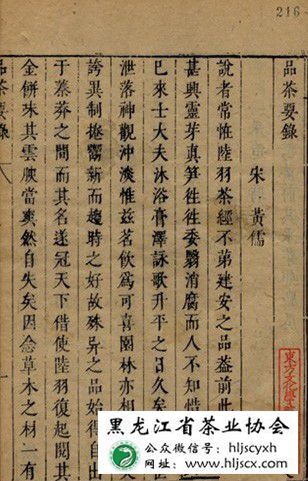 216
品茶要錄
宋 黃儒
說者常怪陸羽茶經不第建安之品蓋前此
甚興靈芽真筍徃徃委翳消腐而人不知惜
巳來士大夫沐浴膏澤詠歌升平之日久矣
泄落神觀冲淡惟兹茗飲爲可喜園林亦相
誇異制捲鬻新而趨時之好故殊異之品始得自出
于蓁莽之間而其名遂冠天下借使陸羽復起閱其
金餅味其雲腴當爽然自失矣因念草木之材一有
品茶要錄
黑龙江省茶业协会
公众微信号: hljscyxh
网址: www.hljscx.com